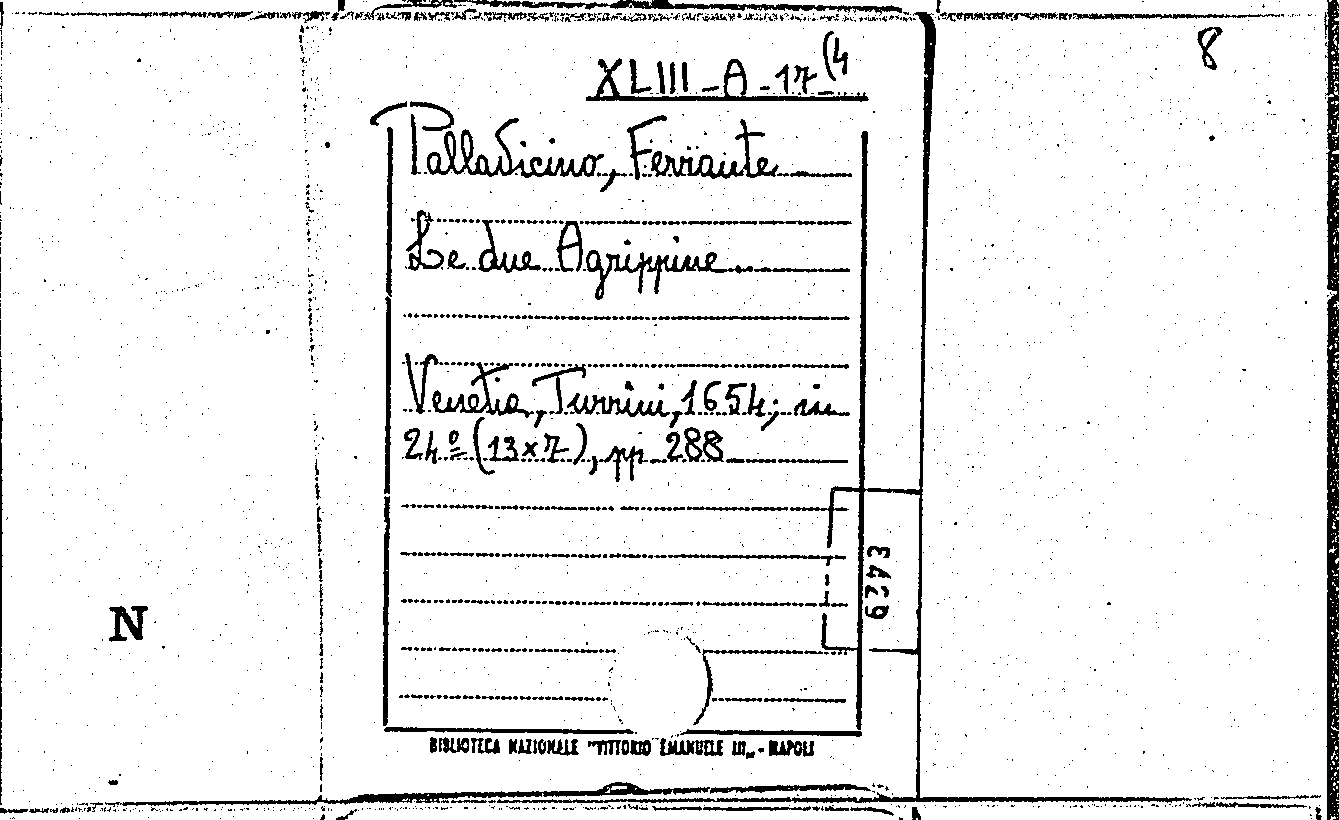 8
XLIII-A-17(4
Palladicino, Ferrante
Le due Agrippine
Venetia, Turrini, 1654; in
24º (13x7), pp 288
3429
N
BIBLIOTECA NAZIONALE "VITTORIO EMANUELE III„ - NAPOLI